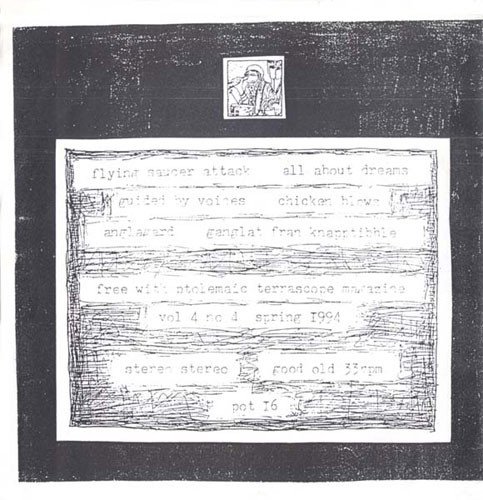 flying saucer attack all about dreams
guided by voices chicken blows
anglagard ganglat fran knapptibble
free with ptolemaic terrascope magazine
vol 4 no 4 spring I994
stereo stereo good old 33rpm
pot I6